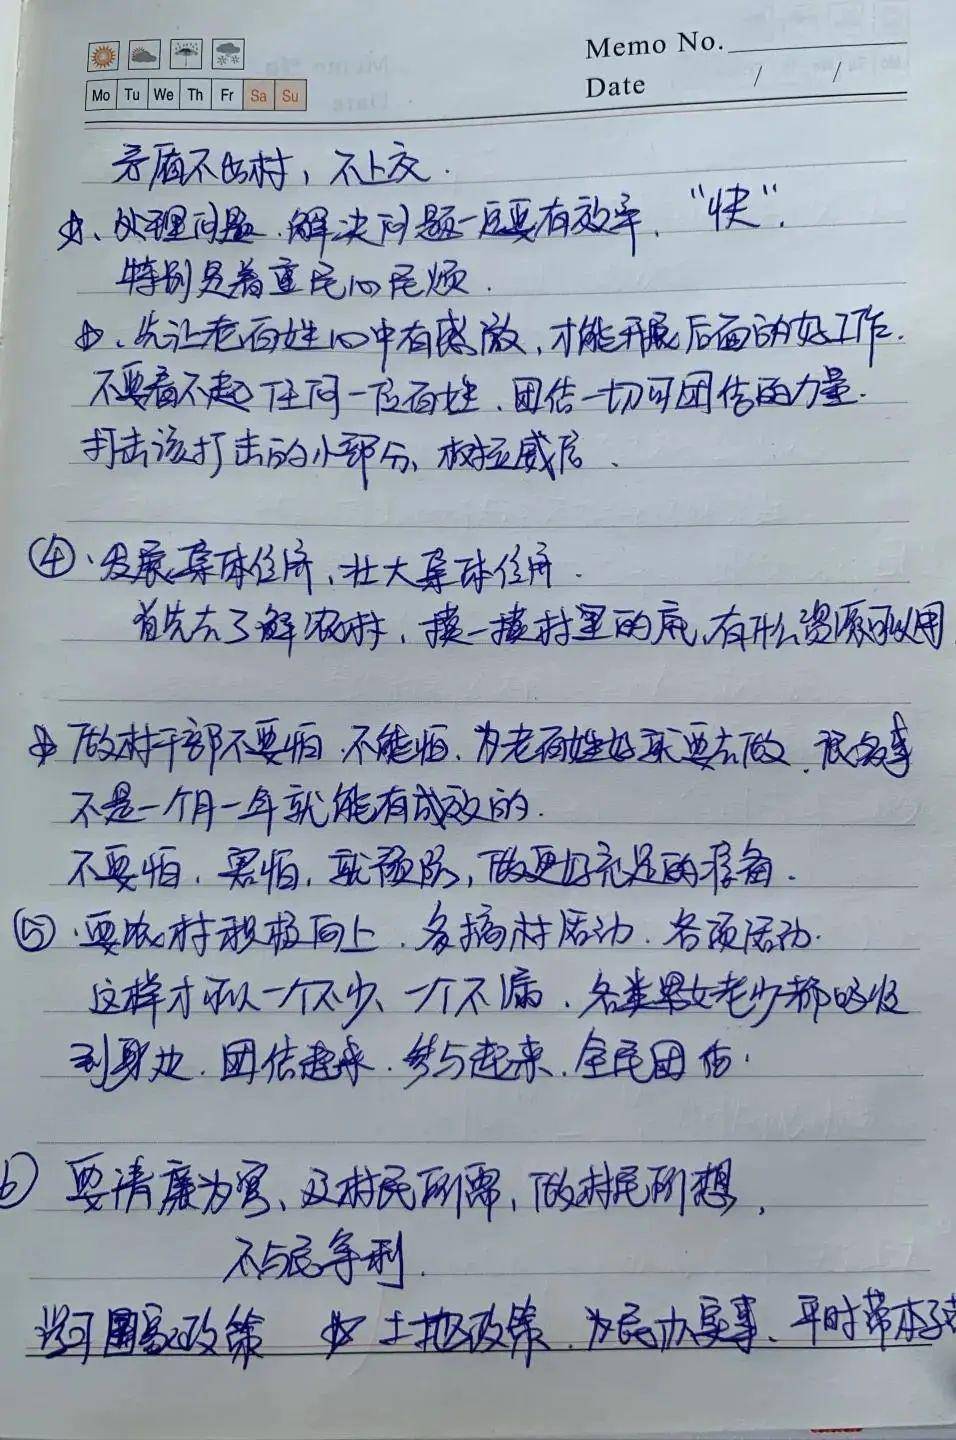 Memo No.
Mo Tu We Th Fr Sa Su
Date / /
矛盾不出村，不上交.
☆、处理问题、解决问题一定要有效率、“快”.
特别是着重民心民烦.
☆、先让老百姓心中有感激，才能开展后面的好工作.
不要看不起任何一位百姓、团结一切可团结的力量.
打击该打击的小部分、树立威信、
④、发展集体经济、壮大集体经济.
首先去了解农村，摸一摸村里的底、有什么资源可以用
☆ 做村干部不要怕、不能怕、为老百姓好就要去做、很多事
不是一个月一年就能有成效的.
不要怕、害怕，就预防，做更好充足的准备.
⑤、要农村积极向上、多搞村活动、各项活动.
这样才可以一个不少、一个不漏、各类男女老少都吸收
到身边、团结起来、参与起来、全民团结.
⑥ 要清廉为官、及村民所需，做村民所想，
不与民争利.
国家政策 ☆ 土地政策、为民办实事、平时带本子